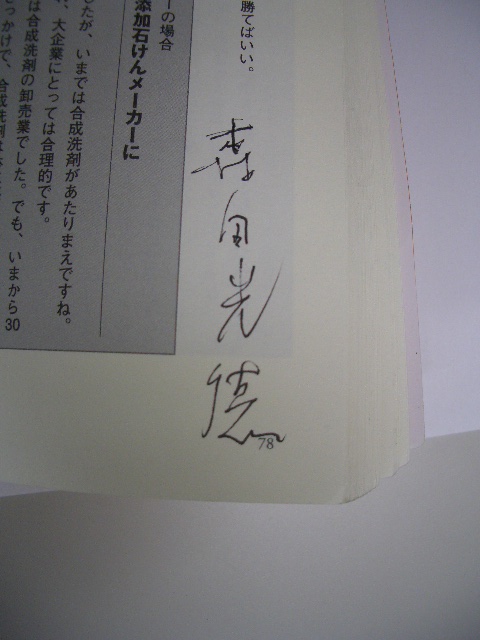 勝てばいい。
森田光德
ーの場合
添加石けんメーカーに
したが、いまでは合成洗剤があたりまえですね。
、大企業にとっては合理的です。
は合成洗剤の卸売業でした。でも、いまから30
っかけで、合
78